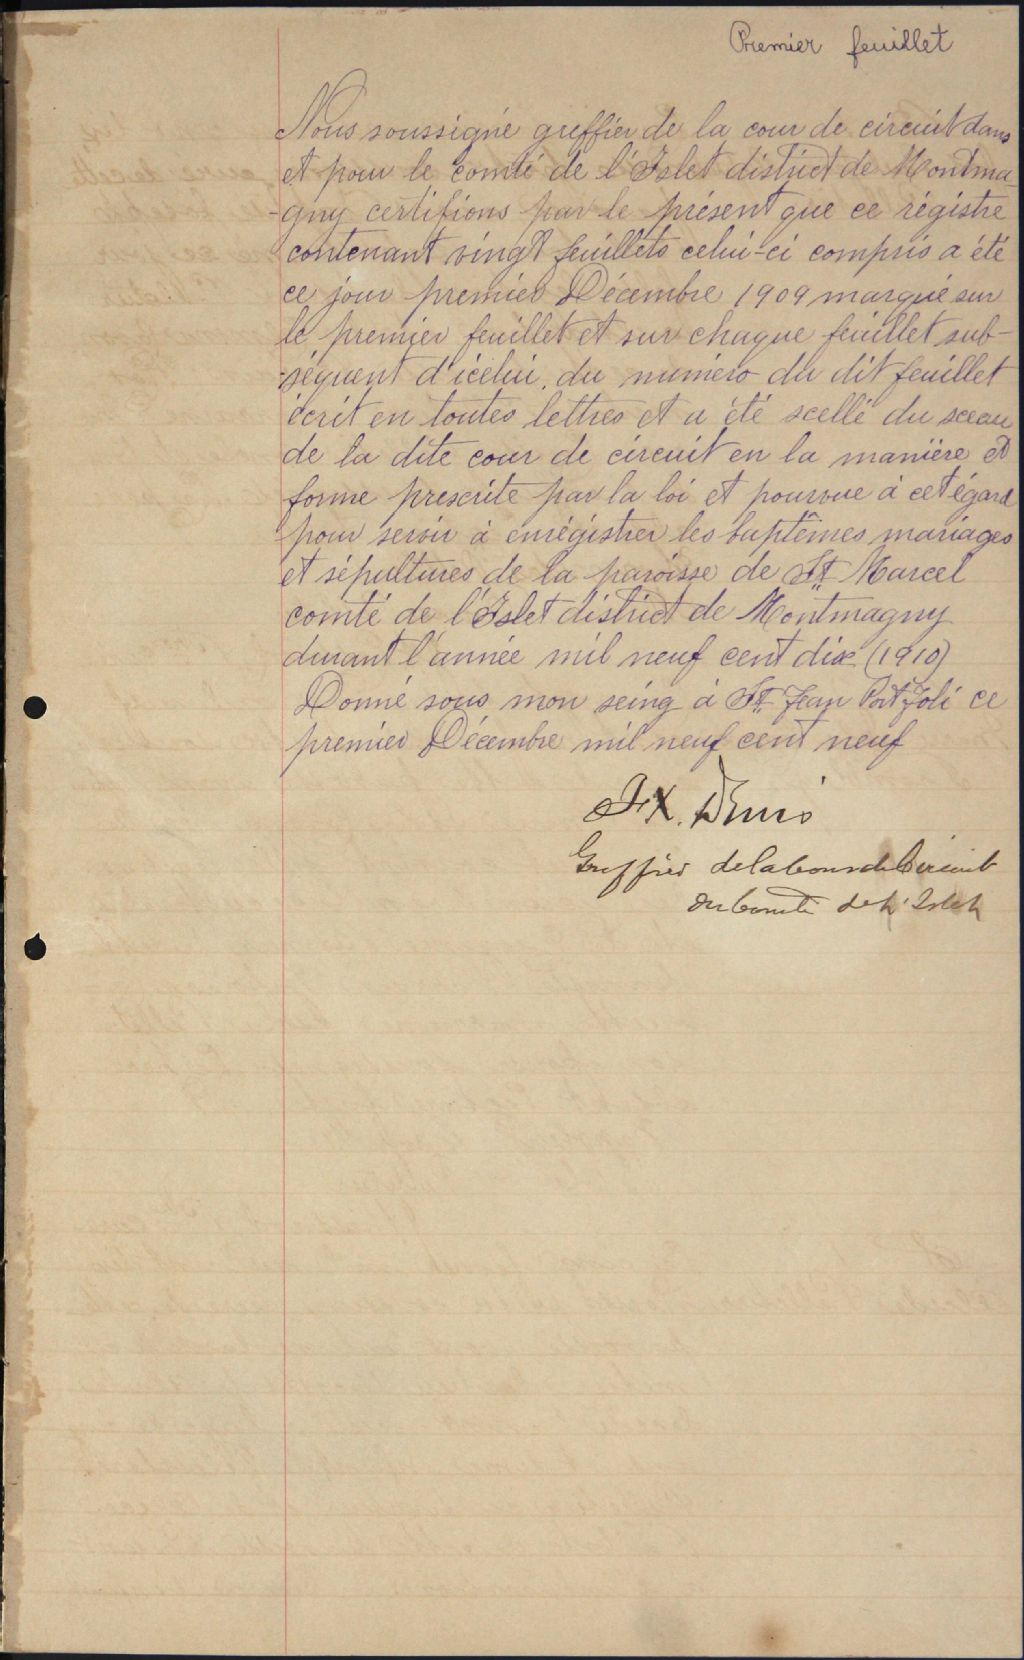 Premier feuillet
Nous soussigné greffier de la cour de circuit dans
et pour le comté de l'Islet district de Montma-
-gny certifions par le présent que ce régistre
contenant vingt feuillets celui-ci compris a été
ce jour premier Décembre 1909 marqué sur
le premier feuillet et sur chaque feuillet sub-
-séquent d'icelui, du numéro du dit feuillet
écrit en toutes lettres et a été scellé du sceau
de la dite cour de circuit en la manière et
forme prescrite par la loi et pourvue à cet égard
pour servir à enrégistrer les baptêmes mariages
et sépultures de la paroisse de St Marcel
comté de l'Islet district de Montmagny
durant l'année mil neuf cent dix (1910)
Donné sous mon seing à St Jean Port Joli ce
premier Décembre mil neuf cent neuf
F.X. Denis
Greffier de la Cour de Circuit
du Comté de L'Islet